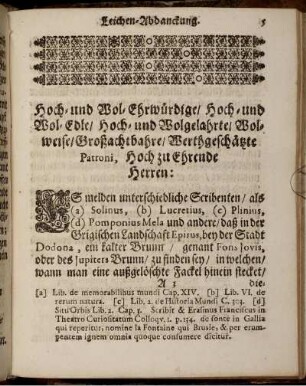 Leichen-Abdanckung. 5
Hoch- und Wol-Ehrwürdige/ Hoch- und
Wol-Edle/ Hoch- und Wolgelahrte/ Wol-
weise/ Großachtbahre/ Werthgeschätzte
Patroni, Hoch zu Ehrende
Herren:
ES melden unterschiedliche Scribenten/ als
(a) Solinus, (b) Lucretius, (c) Plinius,
(d) Pomponius Mela und andere/ daß in der
Grigischen Landschafft Epirus, bey der Stadt
Dodona, ein kalter Brunn/ genant Fons Jovis,
oder des Jupiters Brunn/ zu finden sey/ in welchen/
wann man eine außgelöschte Fackel hinein stecket/
A 3 die-
[a] Lib. de memorabilibus mundi Cap. XIV. [b] Lib. VI. de
rerum natura. [c] Lib. 2. de Historia Mundi C. 103. [d]
Situ Orbis Lib. 2. Cap. 3. Scribit & Erasmus Franciscus in
Theatro Curiositatum Colloqv. 2. p. 134. de fonte in Gallia
qui reperitur, nomine la Fontaine qui Brusle, & per erum-
pentem ignem omnia quoque consumere dicitur.